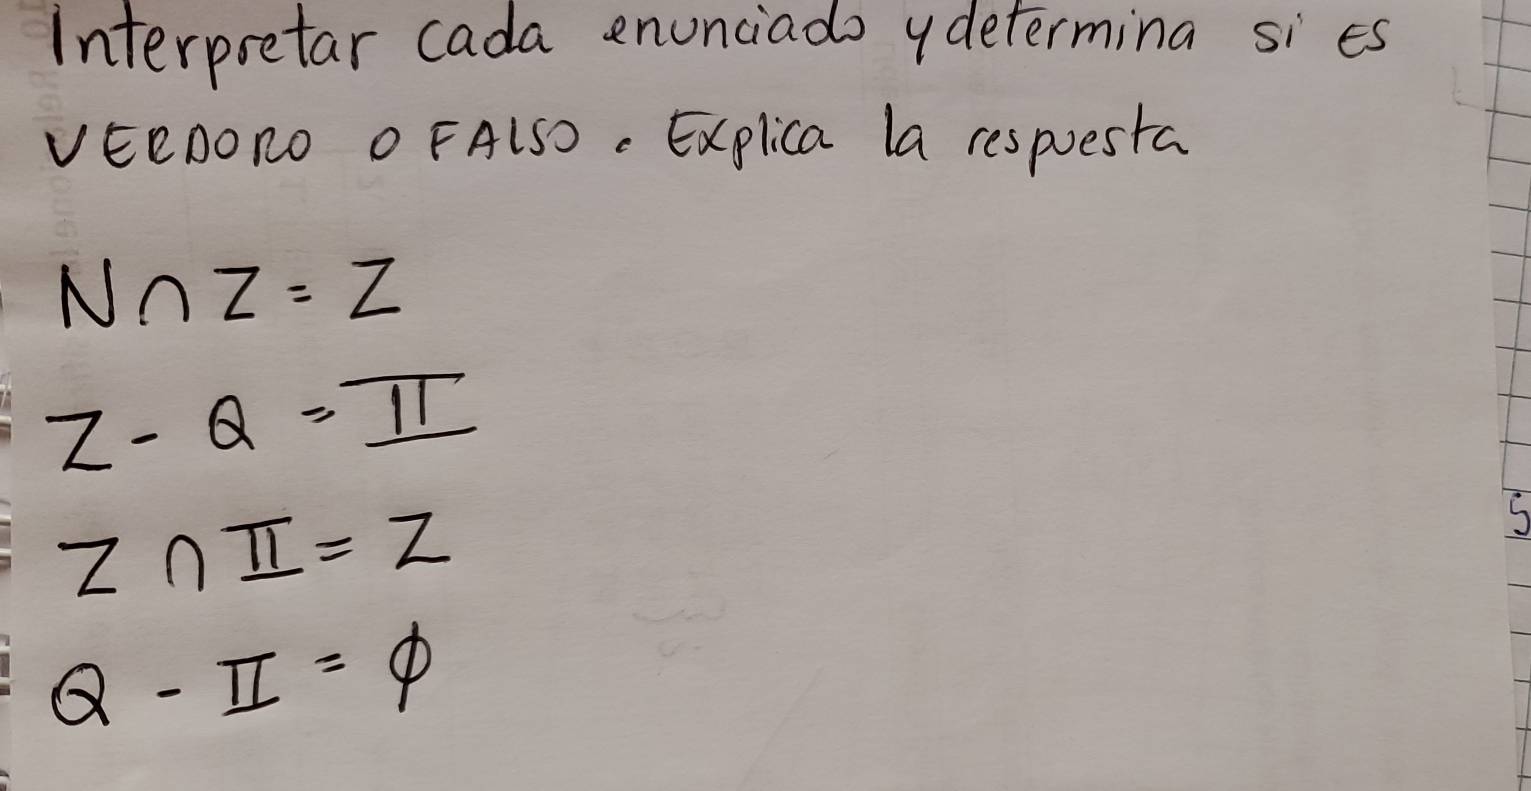 Interpretar cada enunciado y determina si es
VERDORO O FALSO. Explica la respuesta
N ∩ Z = Z
Z - Q = II
Z ∩ II = Z
Q - II = φ
5